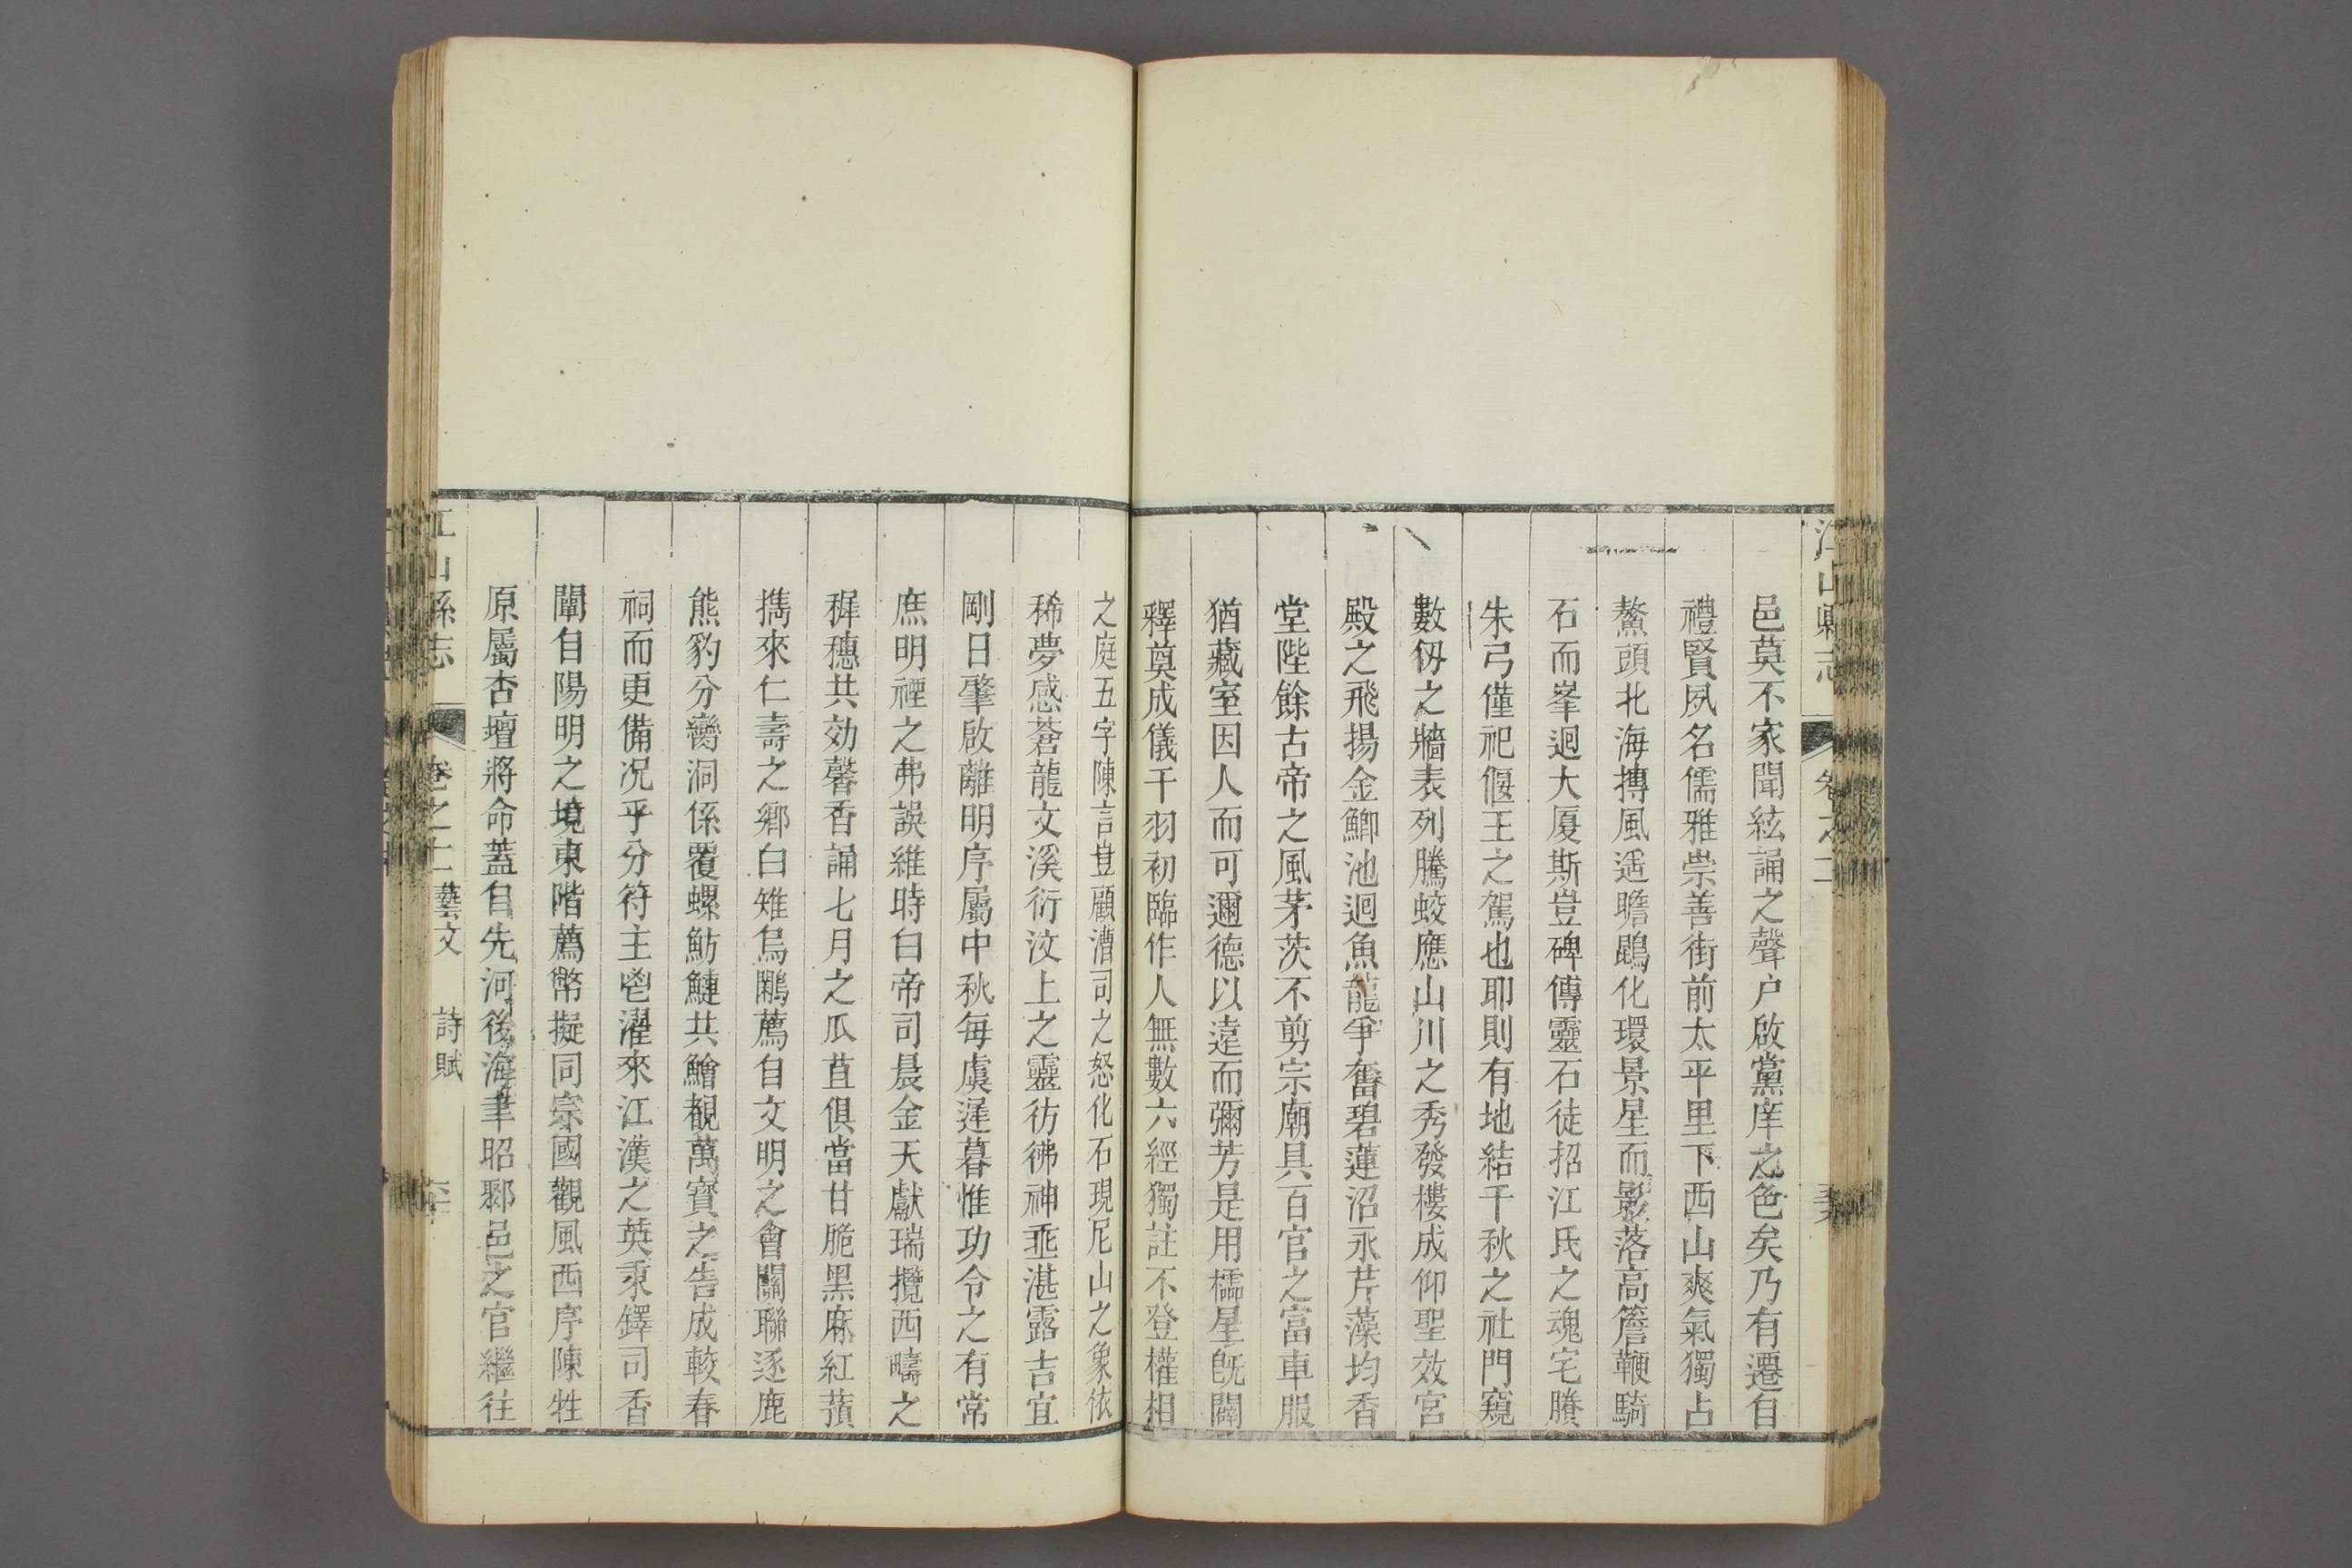 江山縣志 卷之十二
邑莫不家聞絃誦之聲户啟黨庠之色矣乃有遷自
禮賢夙名儒雅崇善街前太平里下西山爽氣獨占
鰲頭北海摶風遥瞻鵾化環景星而影落高簷鞭騎
石而峯迴大厦斯豈碑傳靈石徒招江氏之魂宅賸
朱弓僅祀偃王之駕也耶則有地結千秋之社門窺
數仭之牆表列騰蛟應山川之秀發樓成仰聖效宮
殿之飛揚金鯽池迴魚龍爭奮碧蓮沼永芹藻均香
堂陛餘古帝之風茅茨不剪宗廟具百官之富車服
猶藏室因人而可邇德以遠而彌芳是用櫺星旣闢
釋奠成儀干羽初臨作人無數六經獨註不登權相
之庭五字陳言豈顧漕司之怒化石現尼山之象依
稀夢感蒼龍文溪衍汶上之靈彷彿神乖湛露吉宜
剛日肇啟離明序屬中秋每虞遲暮惟功令之有常
庶明禋之弗誤維時白帝司晨金天獻瑞攬西疇之
穉穗共効馨香誦七月之瓜苴俱當甘脆黑麻紅蕷
攜來仁壽之鄉白雉烏鷳薦自文明之會關聯逐鹿
熊豹分臠洞係覆螺魴鰱共鱠覩萬寳之告成較春
祠而更備况乎分符主鬯濯來江漢之英秉鐸司香
闈自陽明之境東階薦幣擬同宗國觀風西序陳牲
原屬杏壇將命蓋自先河後海聿昭鄹邑之官繼往
江山縣志 卷之十二 藝文 詩賦